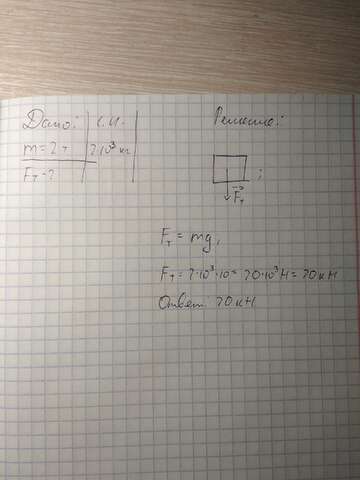 Дано:
С.И.
m = 2 т
2·10³ кг
Fт - ?
Решение:
Fт
;
Fт = mg,
Fт = 2·10³·10 = 20·10³ Н = 20 кН
Ответ: 20 кН